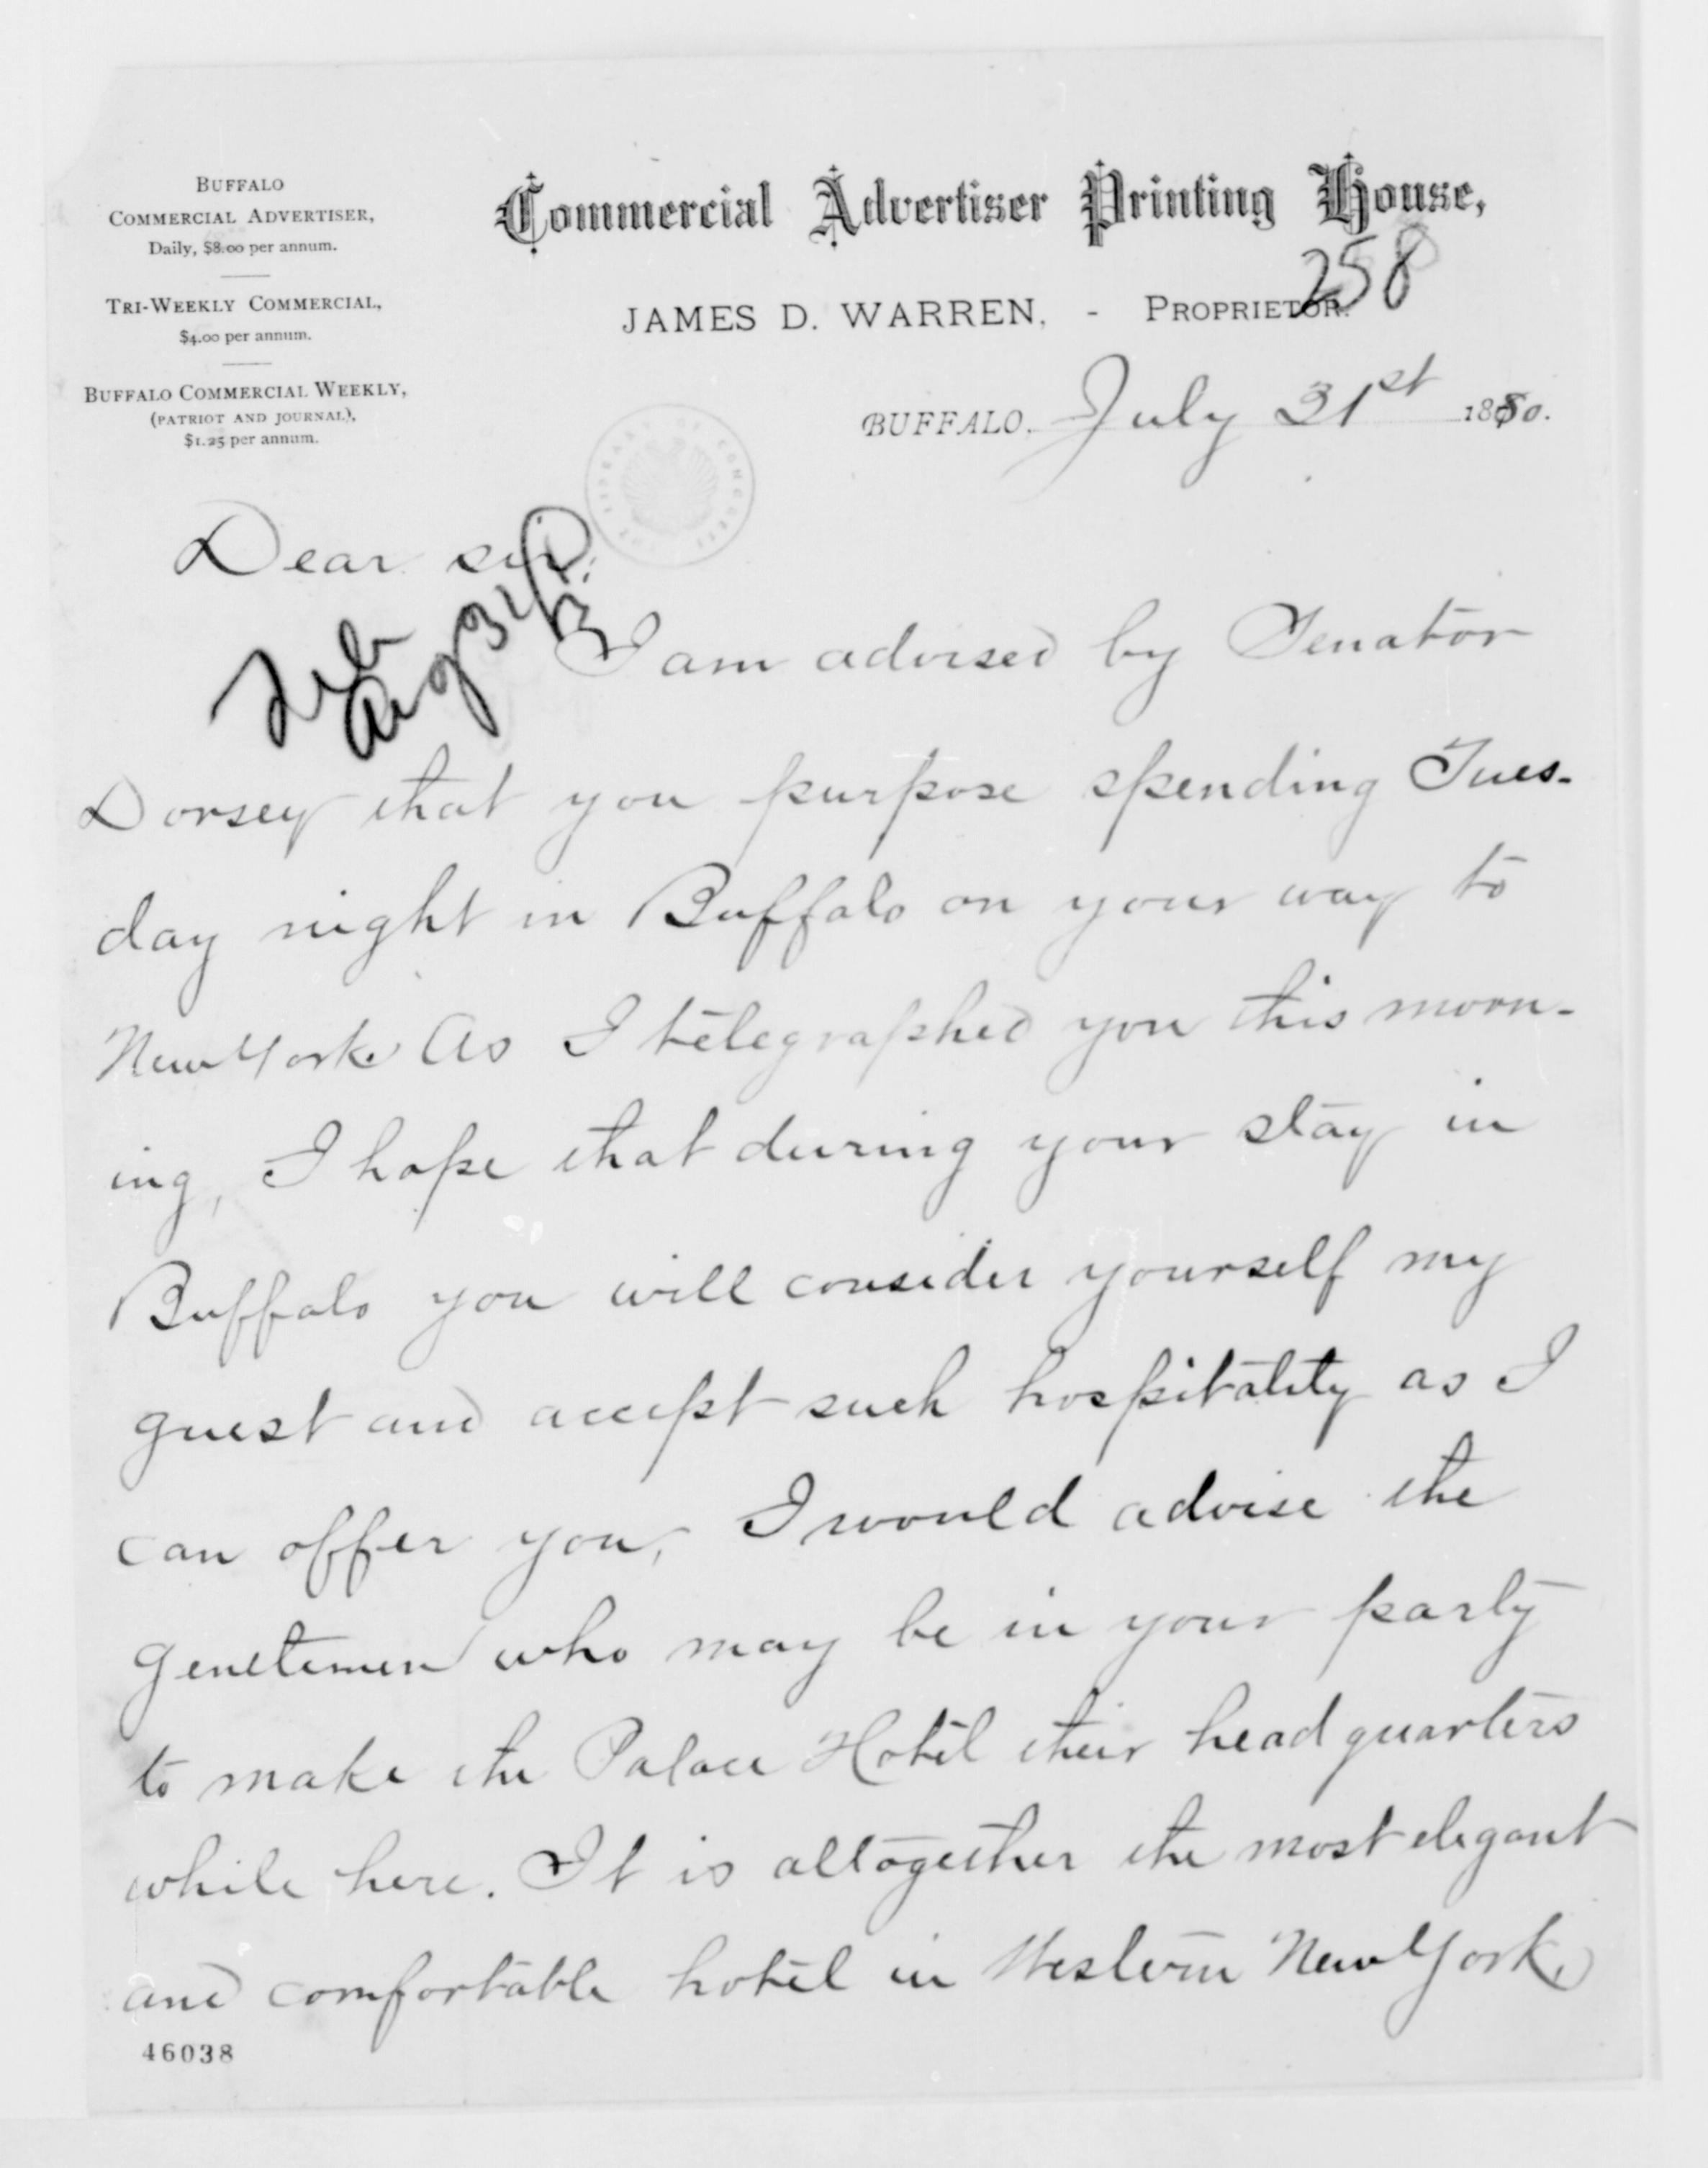 BUFFALO
COMMERCIAL ADVERTISER,
Daily, $8.00 per annum.
TRI-WEEKLY COMMERCIAL,
$4.00 per annum.
BUFFALO COMMERCIAL WEEKLY,
(PATRIOT AND JOURNAL),
$1.25 per annum.
Commercial Advertiser Printing House,
258
JAMES D. WARREN, - PROPRIETOR.
BUFFALO, July 31st 1880.
LIBRARY OF CONGRESS
Dear sir:
Aug 3
I am advised by Senator
Dorsey that you purpose spending Tues-
day night in Buffalo on your way to
New York. As I telegraphed you this morn-
ing, I hope that during your stay in
Buffalo you will consider yourself my
guest and accept such hospitality as I
can offer you, I would advise the
genetemen who may be in your party
to make the Palace Hotel their headquarters
while here. It is altogether the most elegant
and comfortable hotel in Western New York,
46038